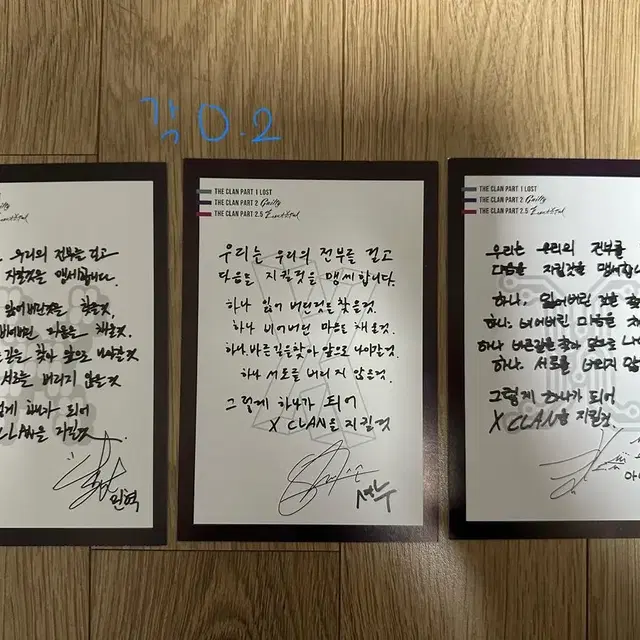 김 0.2
우리의 전부를 걸고
지킬것을 맹세합니다.
잃어버린것은 찾을것,
비어버린 마음은 채울것.
찾아 앞으로 나아갈것
서로를 버리지 않을것
하나가 되어
CLAN을 지킬것
민혁
THE CLAN PART 1 LOST
THE CLAN PART 2 Guilty
THE CLAN PART 2.5
우리는 우리의 전부를 걸고
다음을 지킬것을 맹세합니다.
하나 잃어 버린것을 찾을것.
하나 비어버린 마음도 채울것.
하나. 바른길을찾아 앞으로 나아갈것.
하나 서로를 버리지 않은것.
그렇게 하나가 되어
X CLAN을 지킬것
셔누
THE CLAN PART 1 LOST
THE CLAN PART 2 Guilty
THE CLAN PART 2.5
우리는 우리의 전부를
다음을 지킬것을 맹세합니
하나. 잃어버린 것을
하나. 비어버린 마음은
하나 바른길을 찾아 앞으로
하나. 서로를 버리지
그렇게 하나가 되어
X CLAN을 지킬것